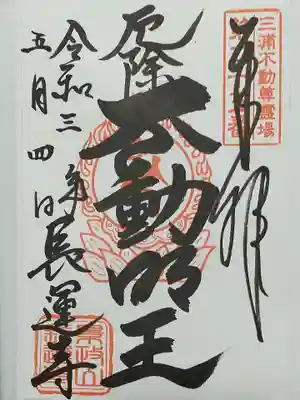 三浦不動尊霊場
奉拝
厄除
不動明王
令和三年
五月四日
長運寺